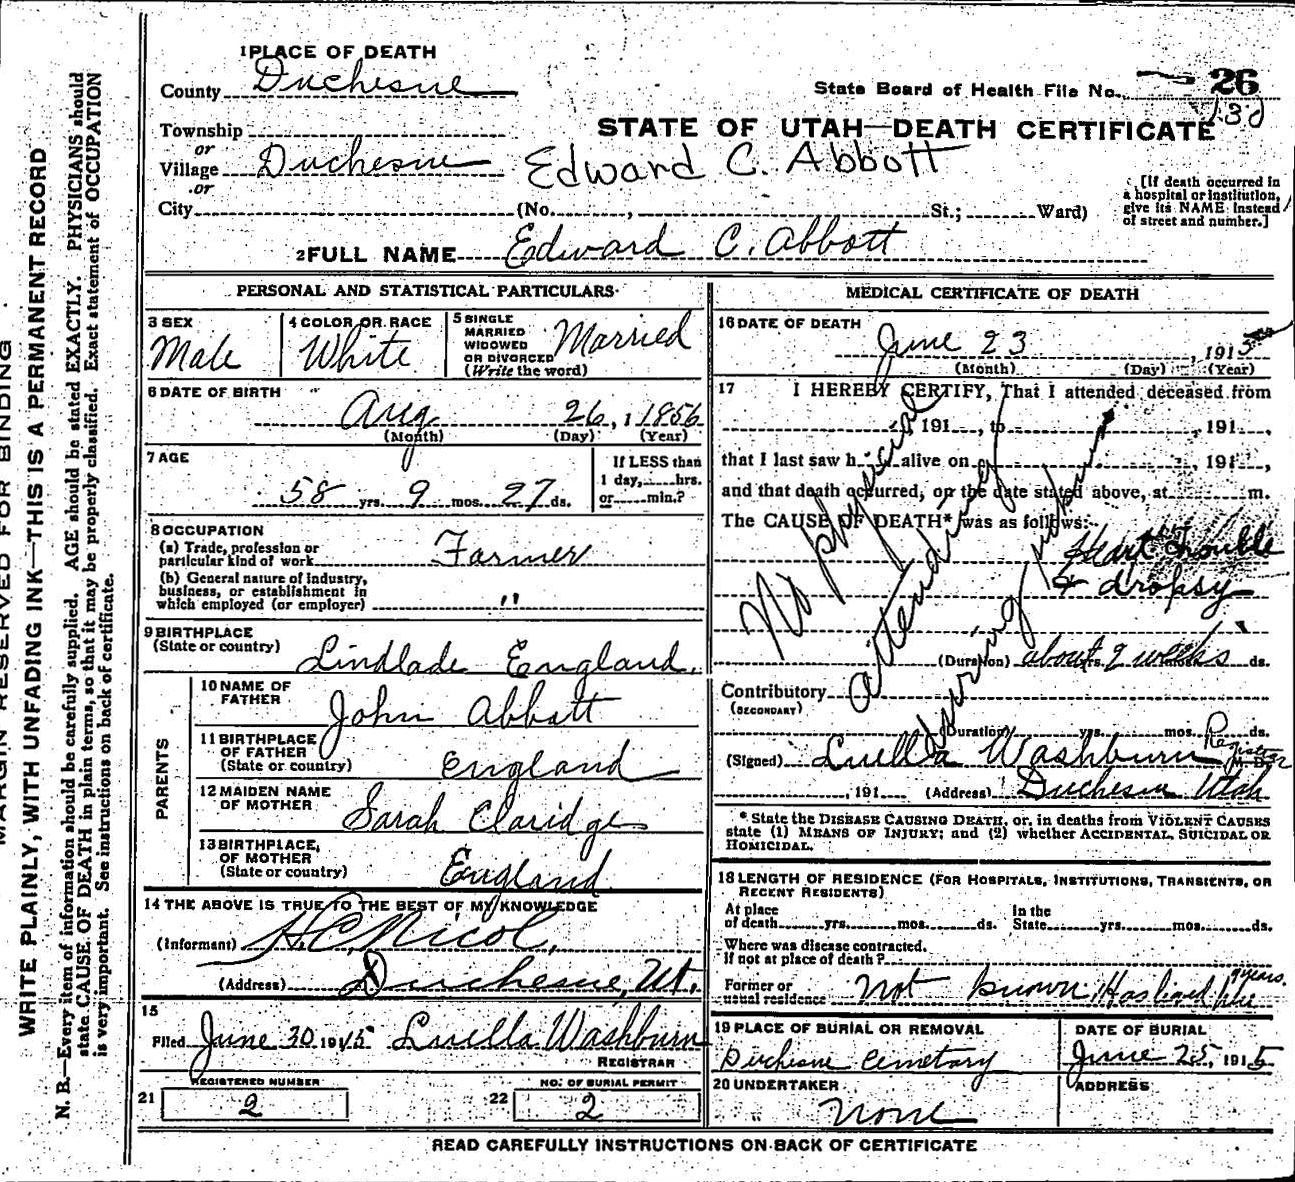 1 PLACE OF DEATH
County Duchesne
State Board of Health File No. 26
130
Township
or
Village Duchesne
or
City (No. , St.; Ward)
STATE OF UTAH—DEATH CERTIFICATE
Edward C. Abbott
[If death occurred in a hospital or institution, give its NAME instead of street and number.]
2 FULL NAME Edward C. Abbott
PERSONAL AND STATISTICAL PARTICULARS
3 SEX
Male
4 COLOR OR RACE
White
5 SINGLE
MARRIED
WIDOWED
OR DIVORCED
(Write the word)
Married
6 DATE OF BIRTH
Aug 26, 1856
(Month) (Day) (Year)
7 AGE
58 yrs. 9 mos. 27 ds.
If LESS than
1 day, hrs.
or min.?
8 OCCUPATION
(a) Trade, profession or
particular kind of work Farmer
(b) General nature of industry,
business, or establishment in
which employed (or employer) "
9 BIRTHPLACE
(State or country) Lindlade England.
PARENTS
10 NAME OF
FATHER John Abbott
11 BIRTHPLACE
OF FATHER
(State or country) England
12 MAIDEN NAME
OF MOTHER Sarah Claridge
13 BIRTHPLACE,
OF MOTHER
(State or country) England
14 THE ABOVE IS TRUE TO THE BEST OF MY KNOWLEDGE
(Informant) H.C. Nicol,
(Address) Duchesne, Ut.
15
Filed June 30 1915 Luella Washburn
REGISTRAR
21 REGISTERED NUMBER
2
22 NO. OF BURIAL PERMIT
2
MEDICAL CERTIFICATE OF DEATH
16 DATE OF DEATH
June 23, 1915
(Month) (Day) (Year)
17 I HEREBY CERTIFY, That I attended deceased from
, 191 , to , 191 ,
that I last saw h alive on , 191 ,
and that death occurred, on the date stated above, at m.
The CAUSE OF DEATH* was as follows:
No physician
attending
during
Heart Trouble
& dropsy
(Duration) about 9 weeks yrs. mos. ds.
Contributory
(SECONDARY)
(Duration) yrs. mos. ds.
(Signed) Luella Washburn Registrar M. D.
, 191 (Address) Duchesne Utah
* State the DISEASE CAUSING DEATH, or, in deaths from VIOLENT CAUSES
state (1) MEANS OF INJURY; and (2) whether ACCIDENTAL, SUICIDAL OR
HOMICIDAL.
18 LENGTH OF RESIDENCE (FOR HOSPITALS, INSTITUTIONS, TRANSIENTS, OR
RECENT RESIDENTS)
At place
of death yrs. mos. ds. In the
State yrs. mos. ds.
Where was disease contracted,
if not at place of death?
Former or
usual residence Not known, Has lived here 9 years.
19 PLACE OF BURIAL OR REMOVAL
Duchesne Cemetary
DATE OF BURIAL
June 25, 1915
20 UNDERTAKER
None
ADDRESS
READ CAREFULLY INSTRUCTIONS ON BACK OF CERTIFICATE
MARGIN RESERVED FOR BINDING
WRITE PLAINLY, WITH UNFADING INK—THIS IS A PERMANENT RECORD
N. B.—Every item of information should be carefully supplied. AGE should be stated EXACTLY. PHYSICIANS should
state CAUSE OF DEATH in plain terms, so that it may be properly classified. Exact statement of OCCUPATION
is very important. See instructions on back of certificate.